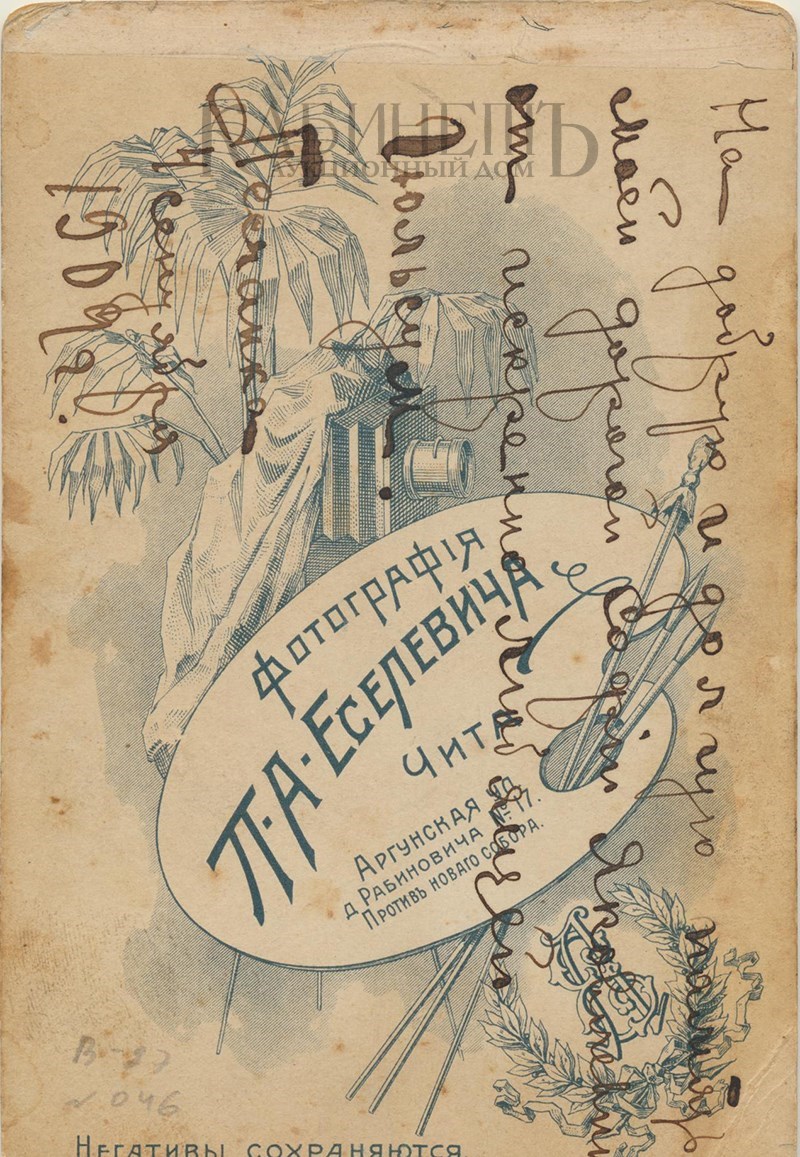 КАБИНЕТЪ
АУКЦИОННЫЙ ДОМ
На добрую и долгую память
моей дорогой Софіи Яковлевн
от искренно любящей
Песчанка
4 сентября
1909 г.
Фотографія
П·А·Еселевича
Чита
Аргунская ул.
д Рабиновича № 17.
Противъ новаго собора.
В-27
№ 046
Негативы сохраняются.